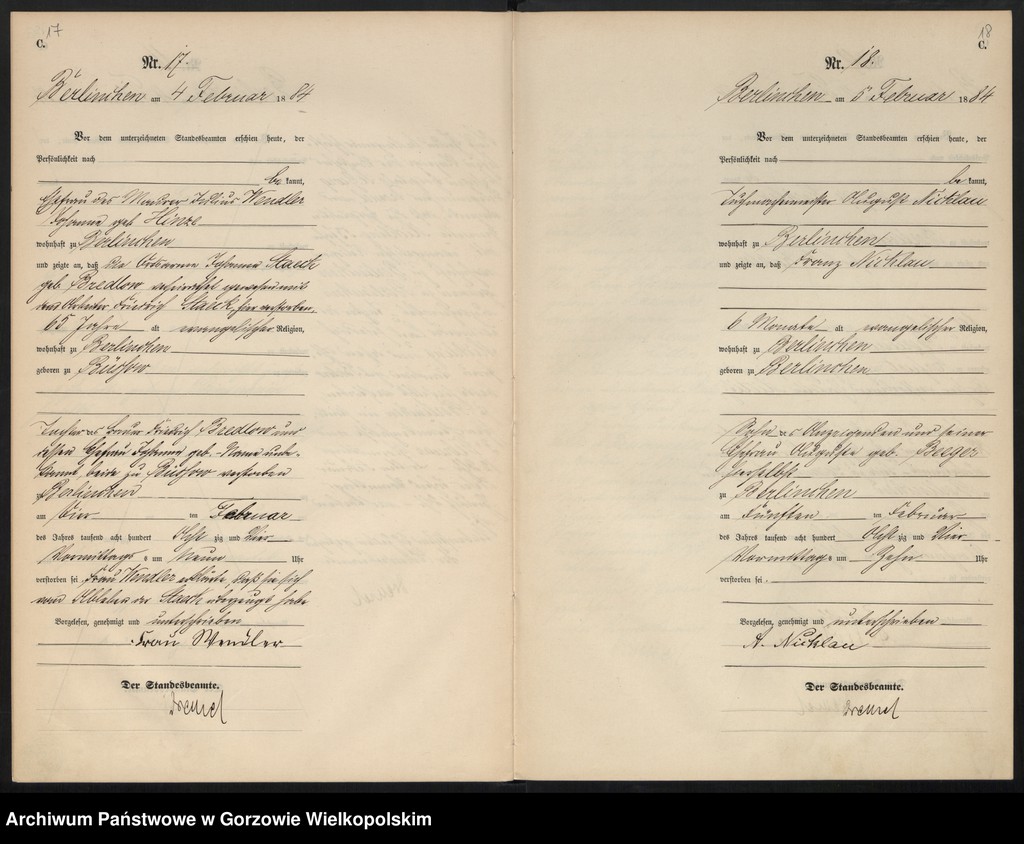 17
C.
Nr. 17.
Berlinchen am 4 Februar 1884
Vor dem unterzeichneten Standesbeamten erschien heute, der
Persönlichkeit nach
bekannt,
Ehefrau des Maurer Julius Wendler
Johanne geb. Hinze
wohnhaft zu Berlinchen
und zeigte an, daß die Ortsarme Johanne Staeck
geb. Bredlow verheirathet gewesen mit
dem Arbeiter Friedrich Staeck, hier verstorben,
65 Jahre alt evangelischer Religion,
wohnhaft zu Berlinchen
geboren zu Büssow
Tochter des Friedrich Bredlow und
dessen Ehefrau Johanne geb. - Name unbe-
kannt, beide zu Büssow verstorben
zu Berlinchen
am Vier ten Februar
des Jahres tausend acht hundert Acht zig und Vier
Vormittags um Neun Uhr
verstorben sei. Frau Wendler erklärte, daß sie sich
vom Ableben der Staeck überzeugt habe
Vorgelesen, genehmigt und unterschrieben
Frau Wendler
Der Standesbeamte.
18
C.
Nr. 18.
Berlinchen am 5 Februar 1884
Vor dem unterzeichneten Standesbeamten erschien heute, der
Persönlichkeit nach
bekannt,
Tuchmachermeister August Nicklau
wohnhaft zu Berlinchen
und zeigte an, daß Franz Nicklau
6 Monate alt evangelischer Religion,
wohnhaft zu Berlinchen
geboren zu Berlinchen
Sohn des Anzeigenden und seiner
Ehefrau Auguste geb. Beeger
hierselbst
zu Berlinchen
am Fünften ten Februar
des Jahres tausend acht hundert Acht zig und Vier
Vormittags um Zehn Uhr
verstorben sei.
Vorgelesen, genehmigt und unterschrieben
A. Nicklau
Der Standesbeamte.
Archiwum Państwowe w Gorzowie Wielkopolskim